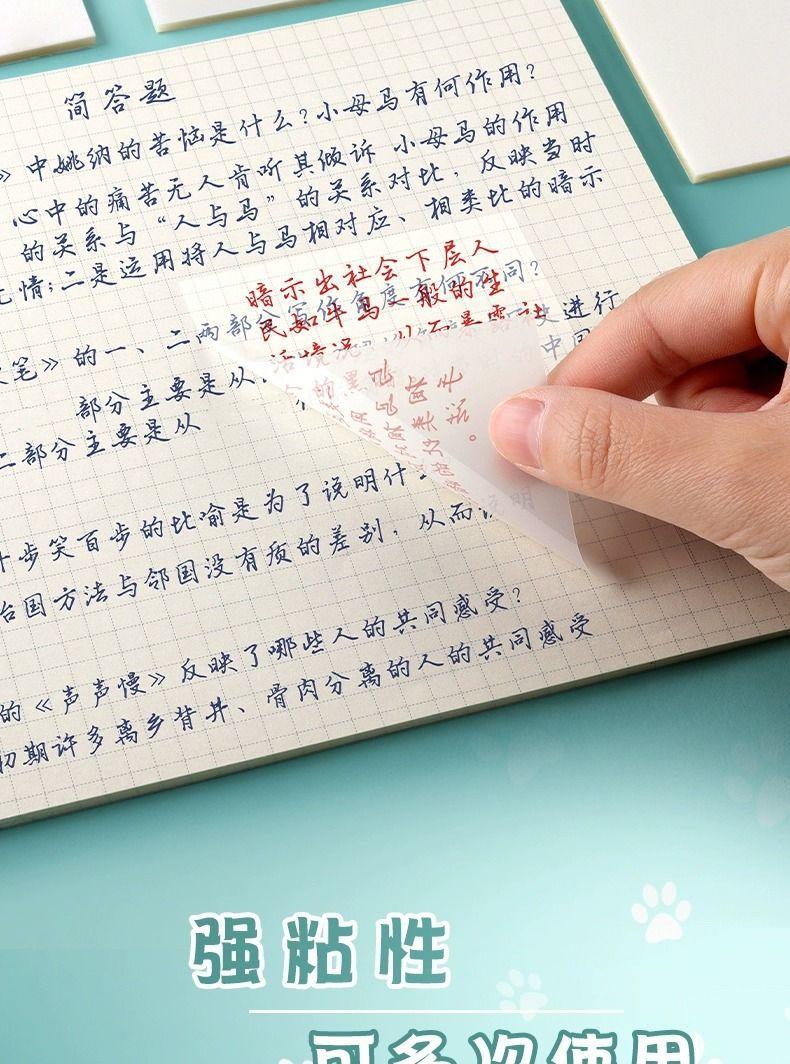 简答题
》中姚纳的苦恼是什么?小母马有何作用?
心中的痛苦无人肯听其倾诉 小母马的作用
的关系与“人与马”的关系对比,反映当时
无情;二是运用将人与马相对应、相类比的暗示
暗示出社会下层人
民如牛马一般的生
活境况,从而暴露社
笔》的一、二两部分写作角度有何不同?
史进行
部分主要是从
中国
二部分主要是从
步笑百步的比喻是为了说明什
治国方法与邻国没有质的差别,从而说明
的《声声慢》反映了哪些人的共同感受?
初期许多离乡背井、骨肉分离的人的共同感受
强粘性
可多次使用